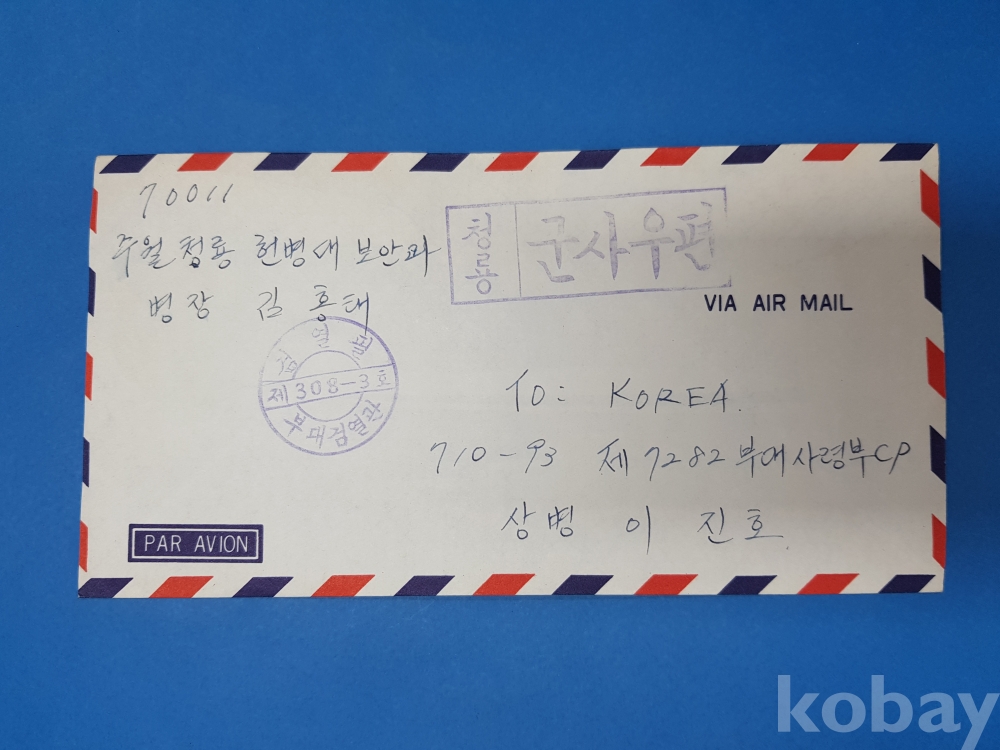 70011
주월 청룡 헌병대 보안과
병장 김홍태
청룡 군사우편
VIA AIR MAIL
검열필
제308-3호
부대검열관
TO: KOREA.
710-93 제7282부대사령부CP
상병 이진호
PAR AVION
kobay